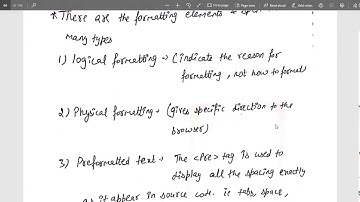 * There are the formatting elements to
many types
1) logical formatting → (indicate the reason for
formatting, not how to format)
2) Physical formatting → (gives specific direction to the
browser)
3) Preformatted text → The <Pre> tag is used to
display all the spacing exactly
as it appear in source code. ie tabs, space,